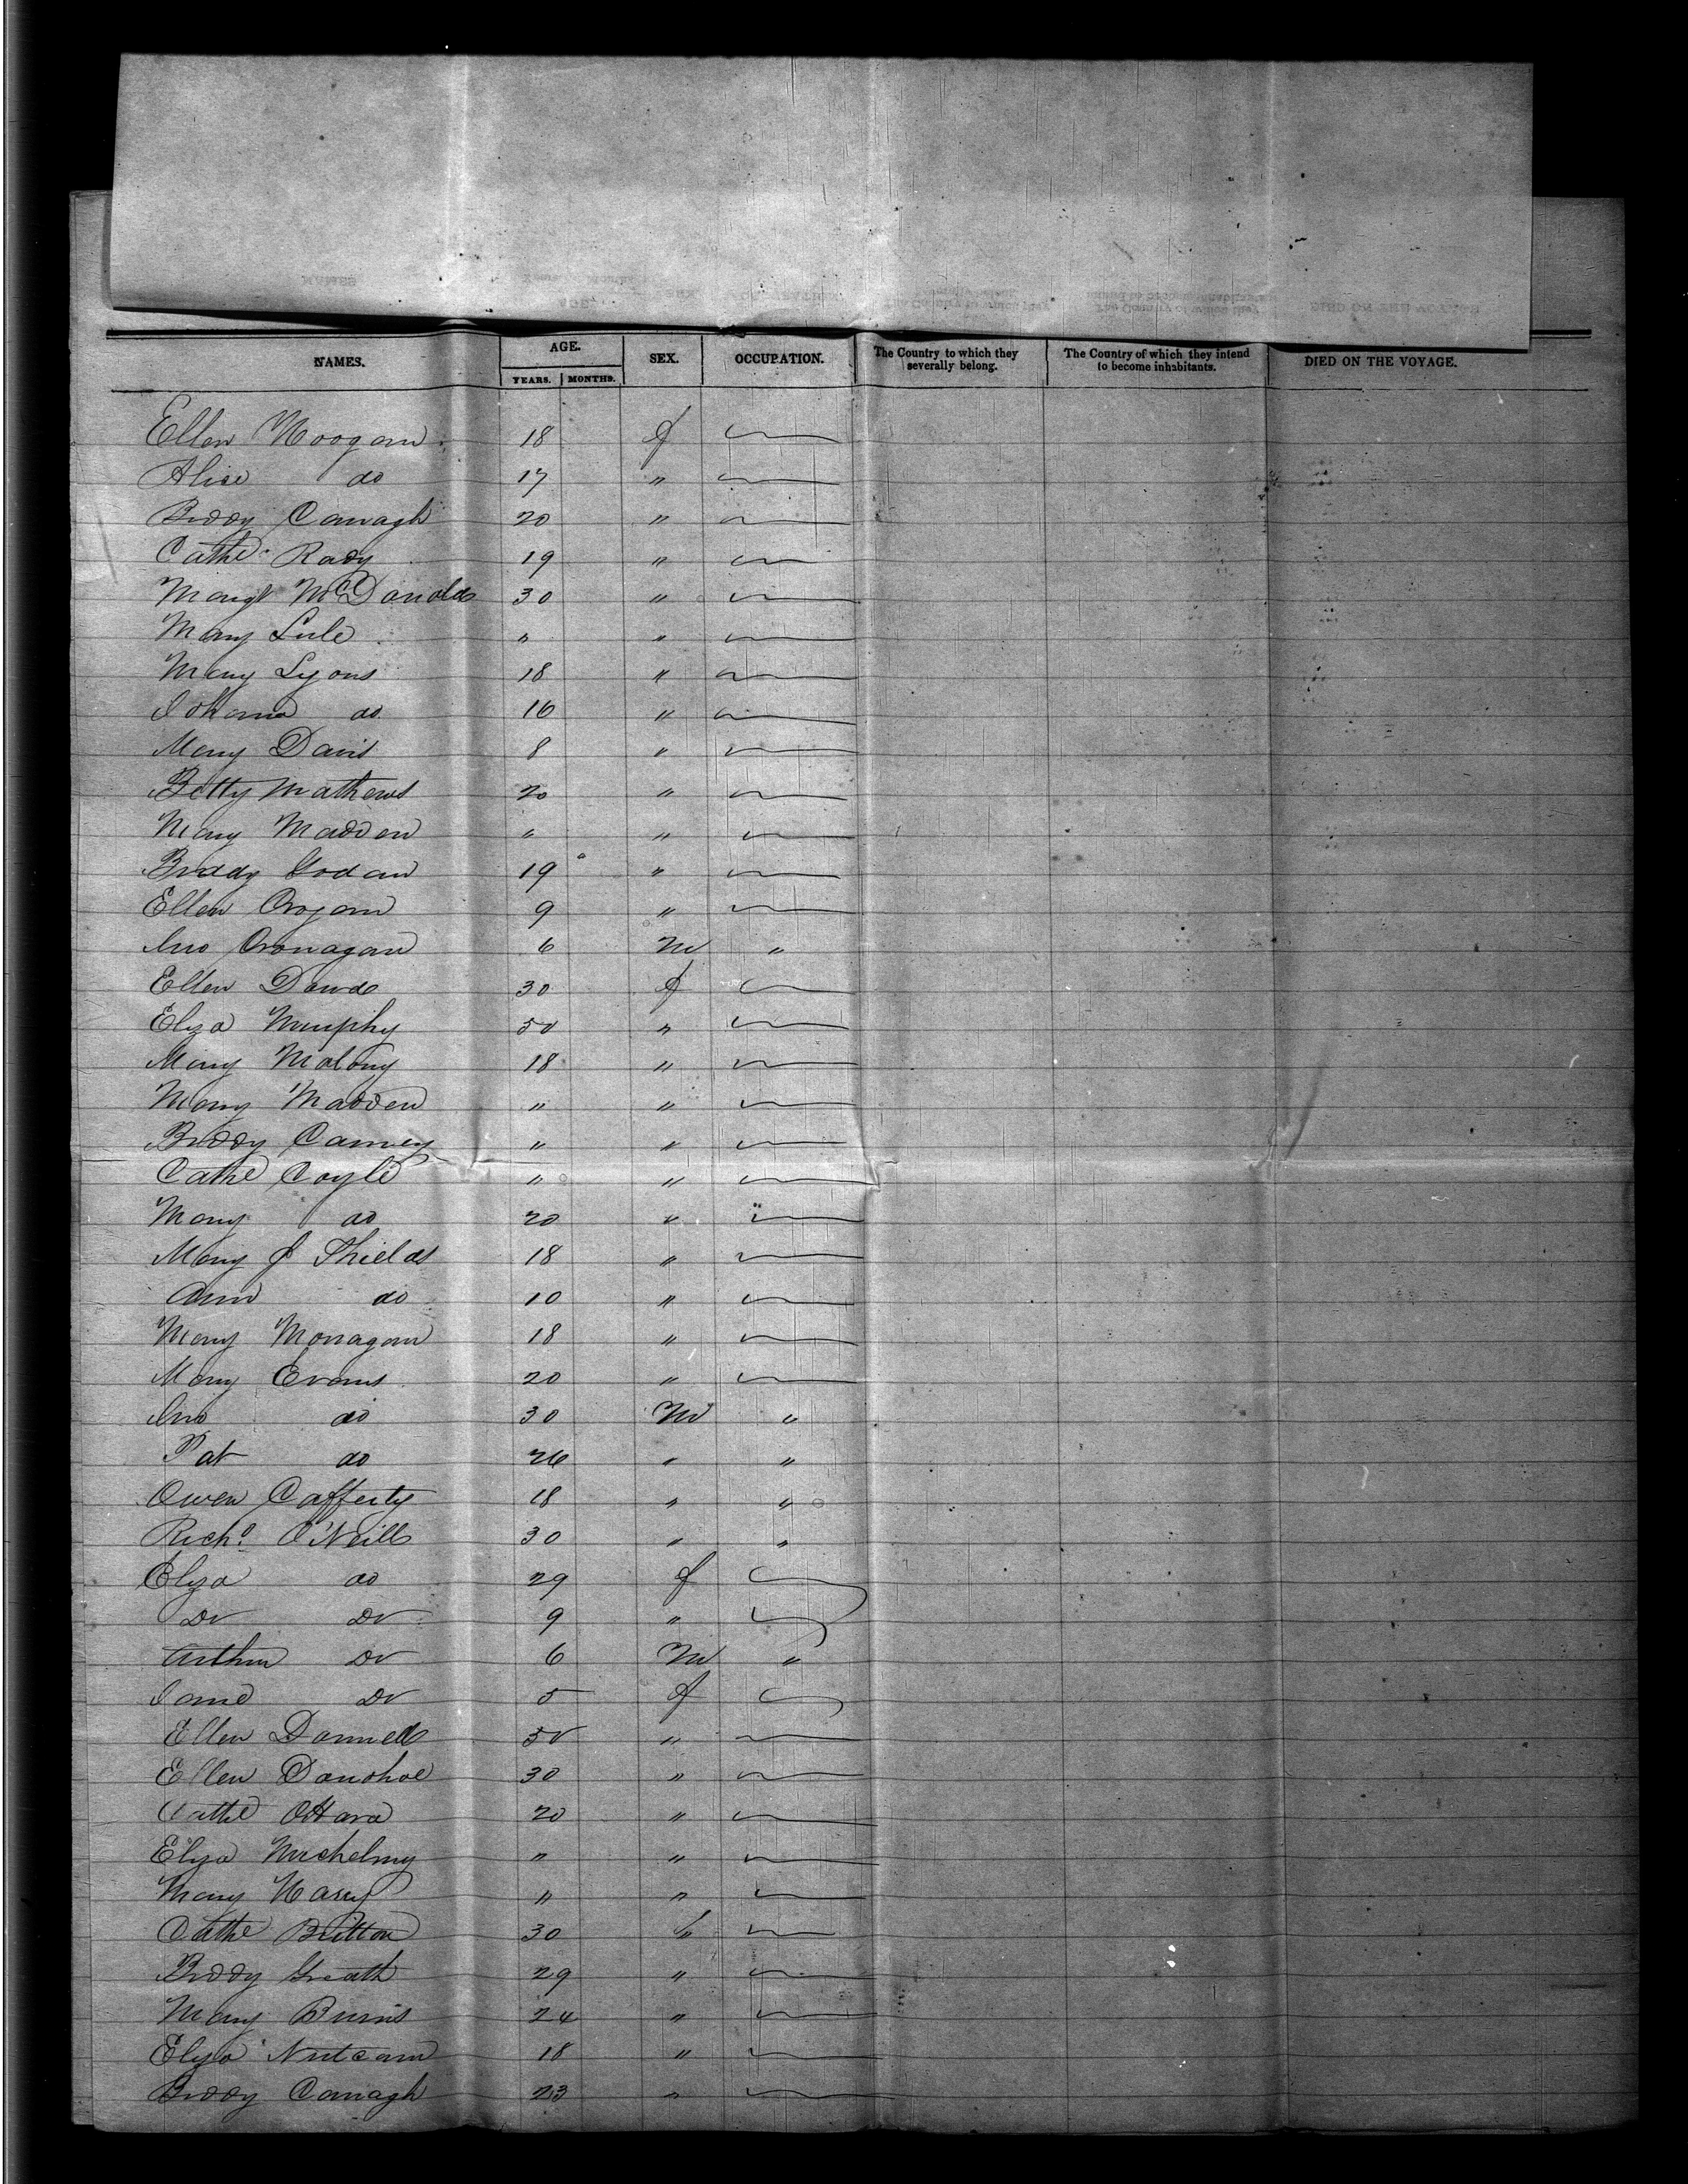 NAMES. AGE. SEX. OCCUPATION. The Country to which they severally belong. The Country of which they intend to become inhabitants. DIED ON THE VOYAGE.
YEARS. MONTHS.
Ellen Hoogan 18 f
Alice do 17 "
Biddy Cavnagh 20 "
Cathe Rady 19 "
Margt McDonald 30 "
Mary Lule " "
Mary Lyons 18 "
Johana do 16 "
Mary Davis 8 "
Betty Mathews 20 "
Mary Madden " "
Briddy Godan 19 "
Ellen Crogan 9 "
Jno Cronagan 6 M "
Ellen Dowd 30 f
Eliza Murphy 50 "
Mary Malony 18 "
Mary Madden " "
Biddy Carney " "
Cathe Coyle " "
Mary do 20 "
Mary J Shields 18 "
Ann do 10 "
Mary Monagan 18 "
Mary Evans 20 "
Jno do 30 M "
Pat do 26 " "
Owen Cafferty 18 " "
Richd O'Neill 30 " "
Eliza do 29 f
Do Do 9 "
Arthur Do 6 M "
Jane Do 5 f
Ellen Donnell 50 "
Ellen Donohoe 30 "
Cathe O'Hara 20 "
Eliza " "
Mary " "
Cathe Britton 30 "
Biddy 29 "
Mary Burns 24 "
Eliza 18 "
Biddy Canagh 23 "